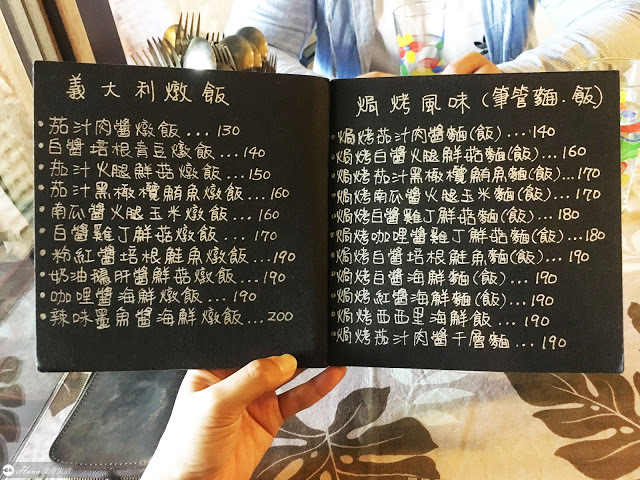 義大利燉飯
•茄汁肉醬燉飯...130
•白醬培根青豆燉飯...140
•茄汁火腿鮮菇燉飯...150
•茄汁黑橄欖鮪魚燉飯...160
•南瓜醬火腿玉米燉飯...160
•白醬雞丁鮮菇燉飯...170
•粉紅醬培根鮭魚燉飯...190
•奶油鵝肝醬鮮菇燉飯...190
•咖哩醬海鮮燉飯...190
•辣味墨魚醬海鮮燉飯...200
焗烤風味(筆管麵.飯)
•焗烤茄汁肉醬麵(飯)...140
•焗烤白醬火腿鮮菇麵(飯)...160
•焗烤茄汁黑橄欖鮪魚麵(飯)...170
•焗烤南瓜醬火腿玉米麵(飯)...170
•焗烤白醬雞丁鮮菇麵(飯)...180
•焗烤咖哩醬雞丁鮮菇麵(飯)...180
•焗烤白醬培根鮭魚麵(飯)...190
•焗烤白醬海鮮麵(飯)...190
•焗烤紅醬海鮮麵(飯)...190
•焗烤西西里海鮮飯...190
•焗烤茄汁肉醬千層麵...190